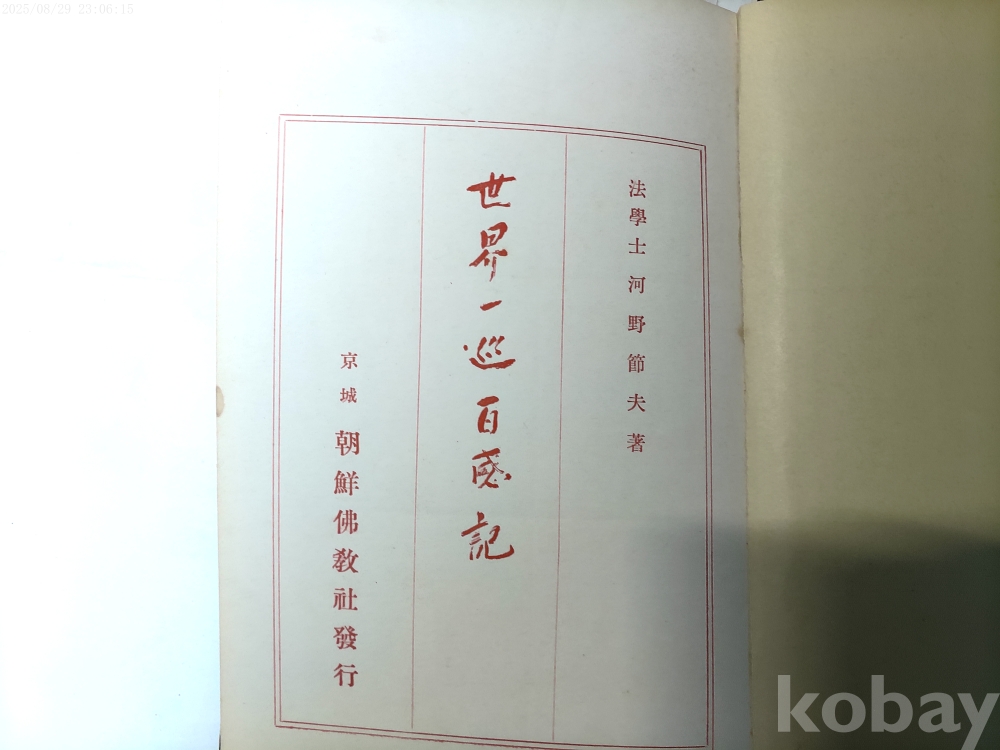 2025/08/29 23:06:15
法學士 河野節夫著
世界一巡百感記
京城 朝鮮佛敎社發行
kobay